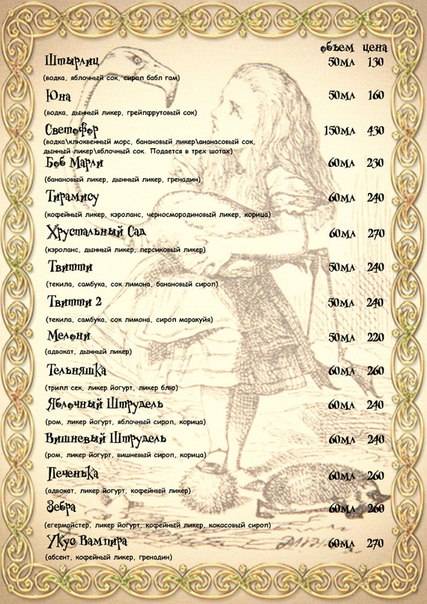 объем цена
Штырлиц 50мл 130
(водка, яблочный сок, сироп бабл гам)
Юна 50мл 160
(водка, дынный ликер, грейпфрутовый сок)
Светофор 150мл 430
(водка\клюквенный морс, банановый ликер\ананасовый сок,
дынный ликер\яблочный сок. Подается в трех шотах)
Боб Марли 60мл 230
(банановый ликер, дынный ликер, гренадин)
Тирамису 60мл 240
(кофейный ликер, кэроланс, черносмородиновый ликер, корица)
Хрустальный Сад 60мл 270
(кэроланс, дынный ликер, персиковый ликер)
Твитти 50мл 240
(текила, самбука, сок лимона, банановый сироп)
Твитти 2 50мл 240
(текила, самбука, сок лимона, сироп маракуйя)
Мелони 50мл 220
(адвокат, дынный ликер)
Тельняшка 60мл 260
(трипл сек, ликер йогурт, ликер блю)
Яблочный Штрудель 60мл 240
(ром, ликер йогурт, яблочный сироп, корица)
Вишневый Штрудель 60мл 240
(ром, ликер йогурт, вишневый сироп, корица)
Печенька 60мл 260
(адвокат, ликер йогурт, кофейный ликер)
Зебра 60мл 260
(егермайстер, ликер йогурт, кофейный ликер, кокосовый сироп)
Укус Вампира 60мл 270
(абсент, кофейный ликер, гренадин)